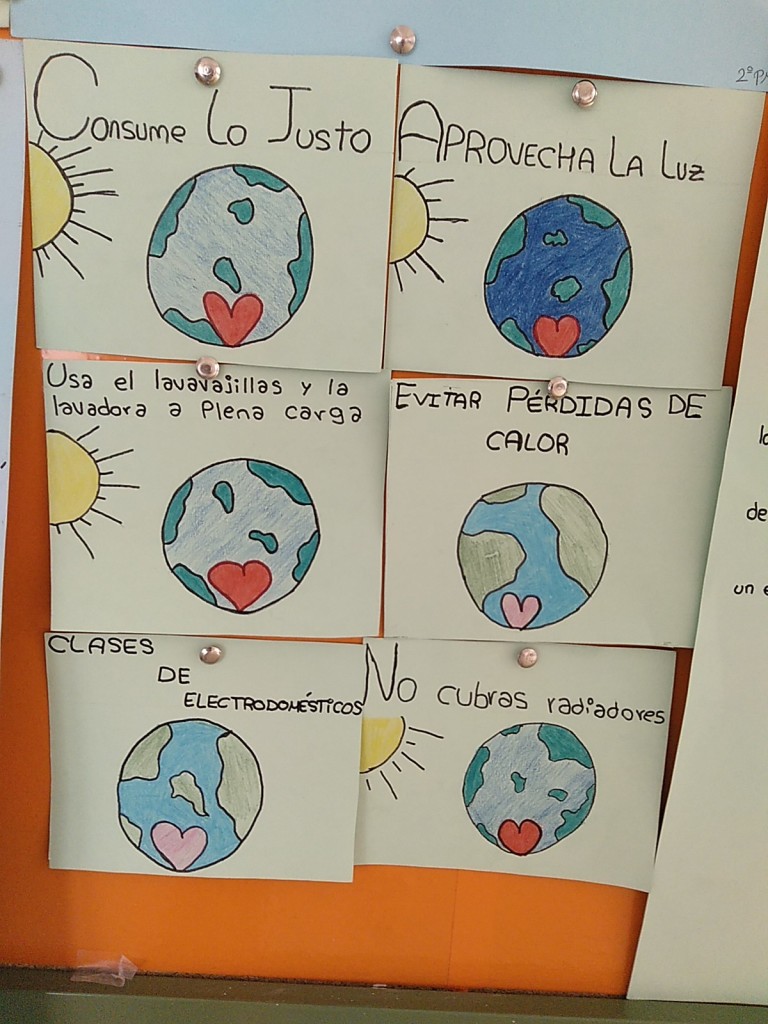 2ºP
Consume lo Justo
APROVECHA LA LUZ
Usa el lavavajillas y la
lavadora a Plena carga
EVITAR PÉRDIDAS DE
CALOR
CLASES
DE
ELECTRODOMÉSTICOS
No cubras radiadores
de
un